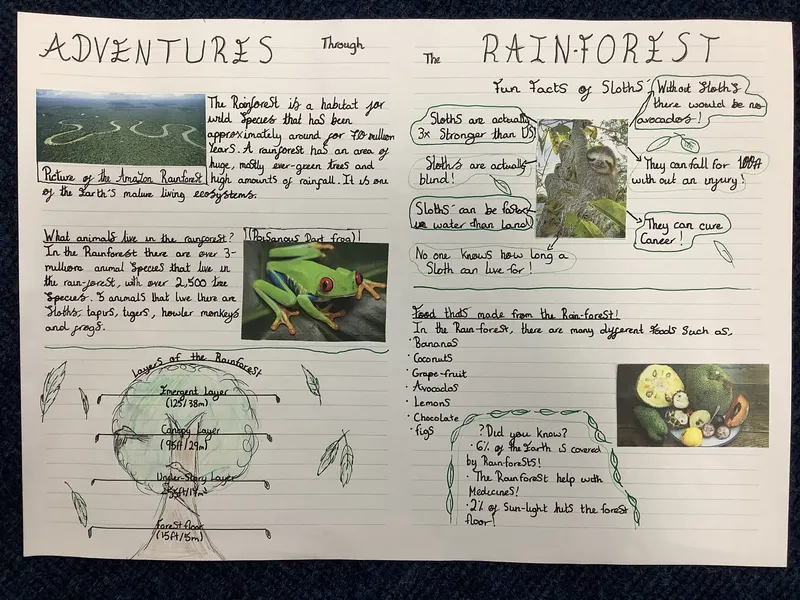 ADVENTURES Through The RAIN-FOREST
The Rainforest is a habitat for
wild Species that has been
approximately around for 70 million
Years. A rainforest has an area of
huge, mostly ever-green trees and
high amounts of rainfall. It is one
Picture of the Amazon Rainforest
of the Earth's mature living ecosystems.
What animals live in the rainforest?
In the Rainforest there are over 3-
millions animal Species that live in
the rain-forest, with over 2,500 tree
Species. 5 animals that live there are
Sloths, tapirs, tigers, howler monkeys
and frogs.
(Poisanous Dart frog)
Layers of the Rainforest
Emergent Layer
(125/38m)
Canopy Layer
(95ft/29m)
Under-Story Layer
Forest floor
(15ft/5m)
Fun Facts of Sloths
Sloths are actually
3x Stronger than US
Sloth's are actually
blind!
Sloths can be faster
in water than land
No one knows how long a
Sloth can live for!
Without Sloth's
there would be no
avocados!
They can fall for 100ft
with out an injury!
They can cure
Cancer!
Food thats made from the Rain-forest!
In the Rain-forest, there are many different foods such as,
· Bananas
· Coconuts
· Grape-fruit
· Avocados
· Lemons
· Chocolate
· figs
?Did you know?
· 6% of the Earth is covered
by Rain-forests!
· The Rainforest help with
Medicines!
· 2% of Sun-light hits the forest
floor!